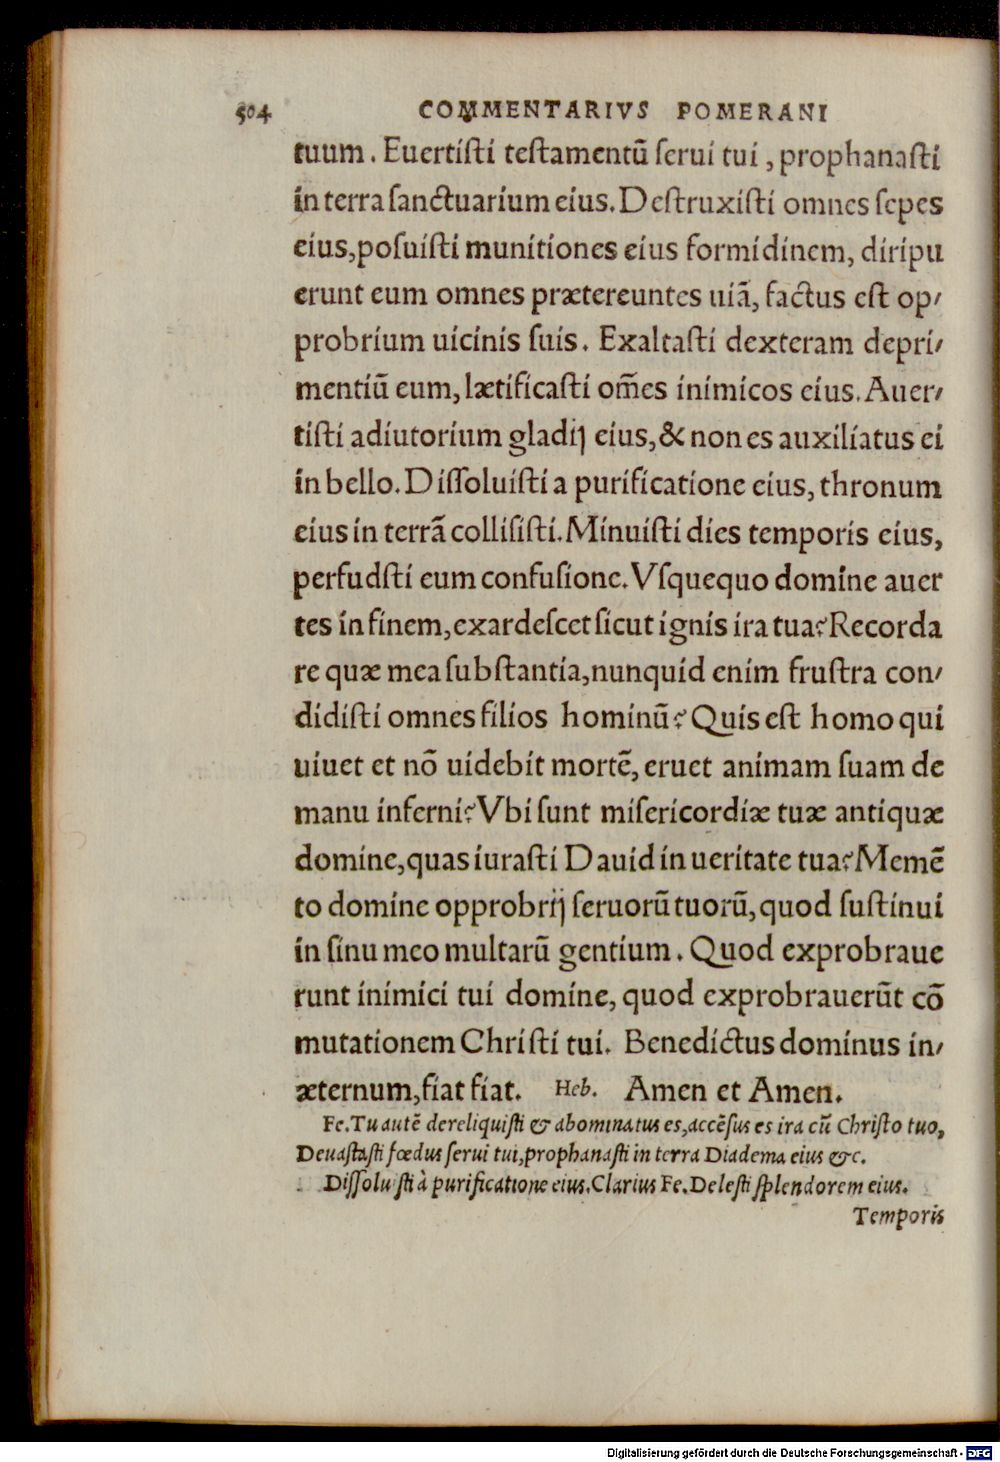 504 COMMENTARIVS POMERANI
tuum. Euertisti testamentū serui tui, prophanasti
in terra sanctuarium eius. Destruxisti omnes sepes
eius, posuisti munitiones eius formidinem, diripu
erunt eum omnes prætereuntes uiā, factus est op/
probrium uicinis suis. Exaltasti dexteram depri/
mentiū eum, lætificasti om̄es inimicos eius. Auer/
tisti adiutorium gladij eius, & non es auxiliatus ei
in bello. Dissoluisti a purificatione eius, thronum
eius in terrā collisisti. Minuisti dies temporis eius,
perfudsti eum confusione. Vsquequo domine auer
tes in finem, exardescet sicut ignis ira tua? Recorda
re quæ mea substantia, nunquid enim frustra con/
didisti omnes filios hominū? Quis est homo qui
uiuet et nō uidebit mortē, eruet animam suam de
manu inferni? Vbi sunt misericordiæ tuæ antiquæ
domine, quas iurasti Dauid in ueritate tua? Memē
to domine opprobrij seruorū tuorū, quod sustinui
in sinu meo multarū gentium. Quod exprobraue
runt inimici tui domine, quod exprobrauerūt cō
mutationem Christi tui. Benedictus dominus in/
æternum, fiat fiat. Heb. Amen et Amen.
Fe. Tu autē dereliquisti & abominatus es, accēsus es ira cū Christo tuo,
Deuastasti fœdus serui tui, prophanasti in terra Diadema eius &c.
Dissoluisti à purificatione eius. Clarius Fe. Delesti splendorem eius.
Temporis
Digitalisierung gefördert durch die Deutsche Forschungsgemeinschaft - DFG